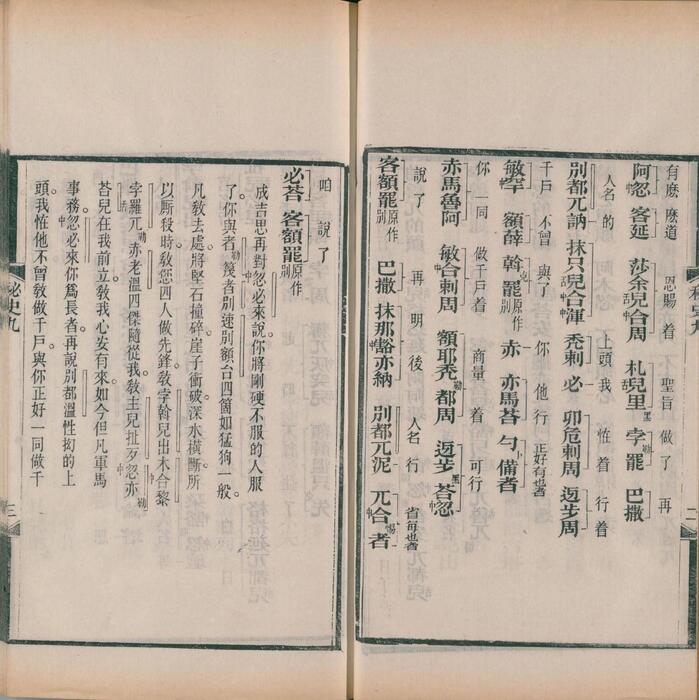 有麽 麽道 恩賜着 聖旨 做了 再
阿忽 客延 莎余中兒舌合周 札兒舌里黑 孛勒罷 巴撒
人名的 上頭我 恠着 行着
別都兀訥 抹只兒舌合中渾 禿剌 必 卯危剌周 迓步周
千戶 不曾 與了 你 他行 正好有也者
敏中罕 額薛 斡克罷原作別 赤 亦馬荅 勻卜備者
你 一同 做千戶着 商量着 可行
赤馬魯阿 敏合中剌周 額耶禿勒都周 迓步黑荅忽
說了 再 明後 人名行 省每也者
客額罷原作別 巴撒 抹那豁中亦納 別都兀泥 兀合中惕者
二
咱 說了
必荅 客額罷原作別
成吉思再對忽必來說你將剛硬不服的人服
了你與者勒篾者別速別額台四箇如猛狗一般
凡敎去處將堅石撞碎崖子衝破深水橫斷所
以厮殺時敎您四人做先鋒敎孛斡兒出木合中黎
孛羅兀勒赤老溫四傑隨從我敎主兒扯歹忽中亦勒
荅兒在我前立敎我心安有來如今但凡軍馬
事務忽中必來你爲長者再說別都溫性拗的上
頭我恠他不曾敎做千戶與你正好一同做千
祕史九
三